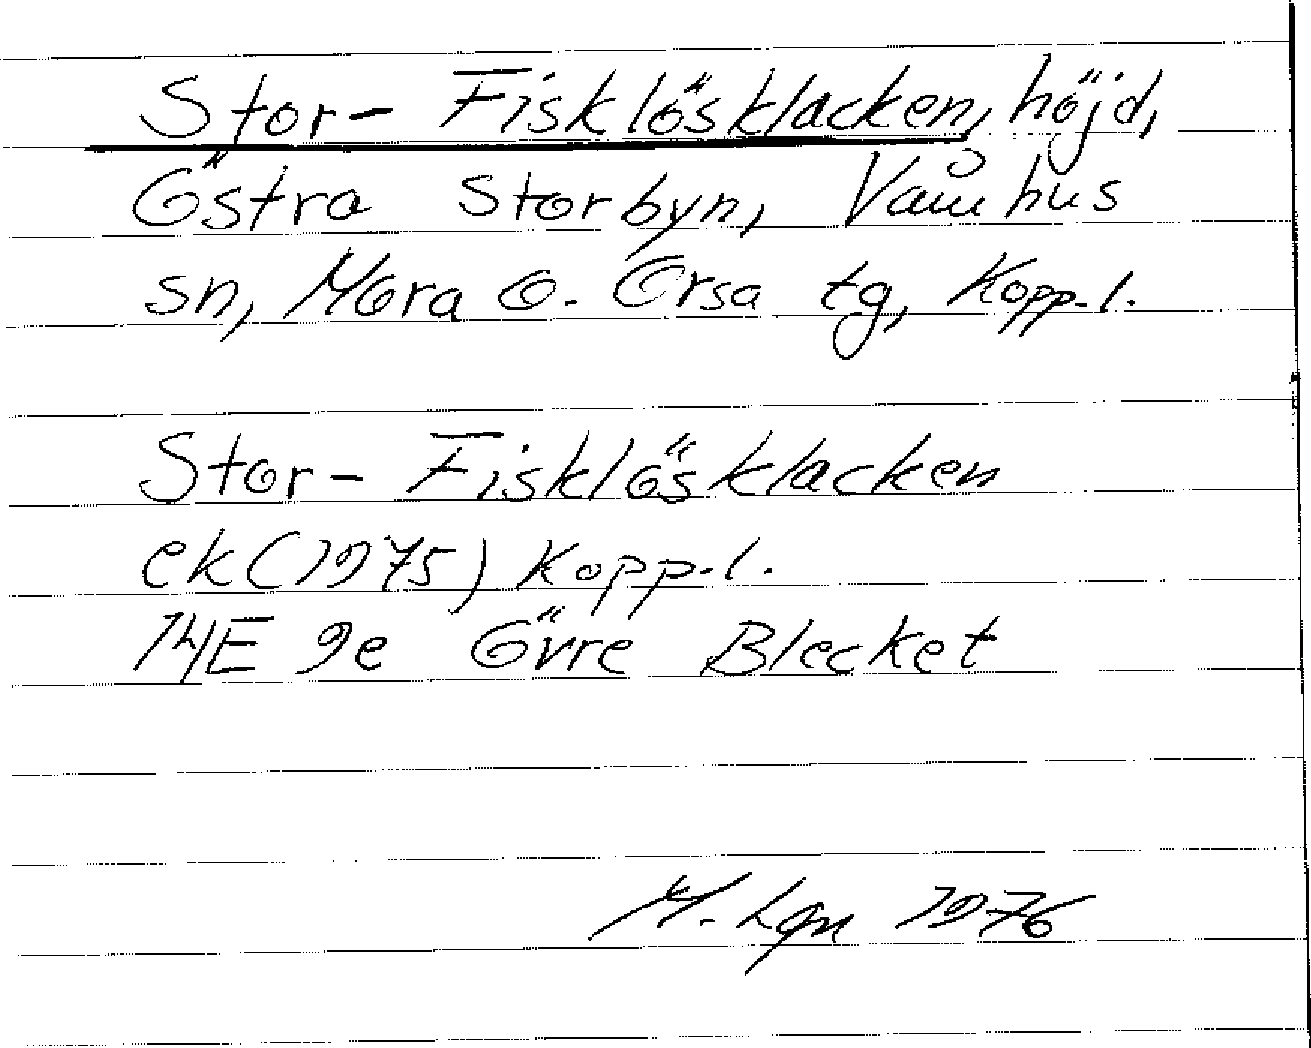 Stor-Fisklösklacken, höjd,
Östra Storbyn, Våmhus
sn, Mora o. Orsa tg, Kopp.l.
Stor-Fisklösklacken
ek (1975) Kopp.l.
14E 9e Övre Blecket
M. Lgn 1976